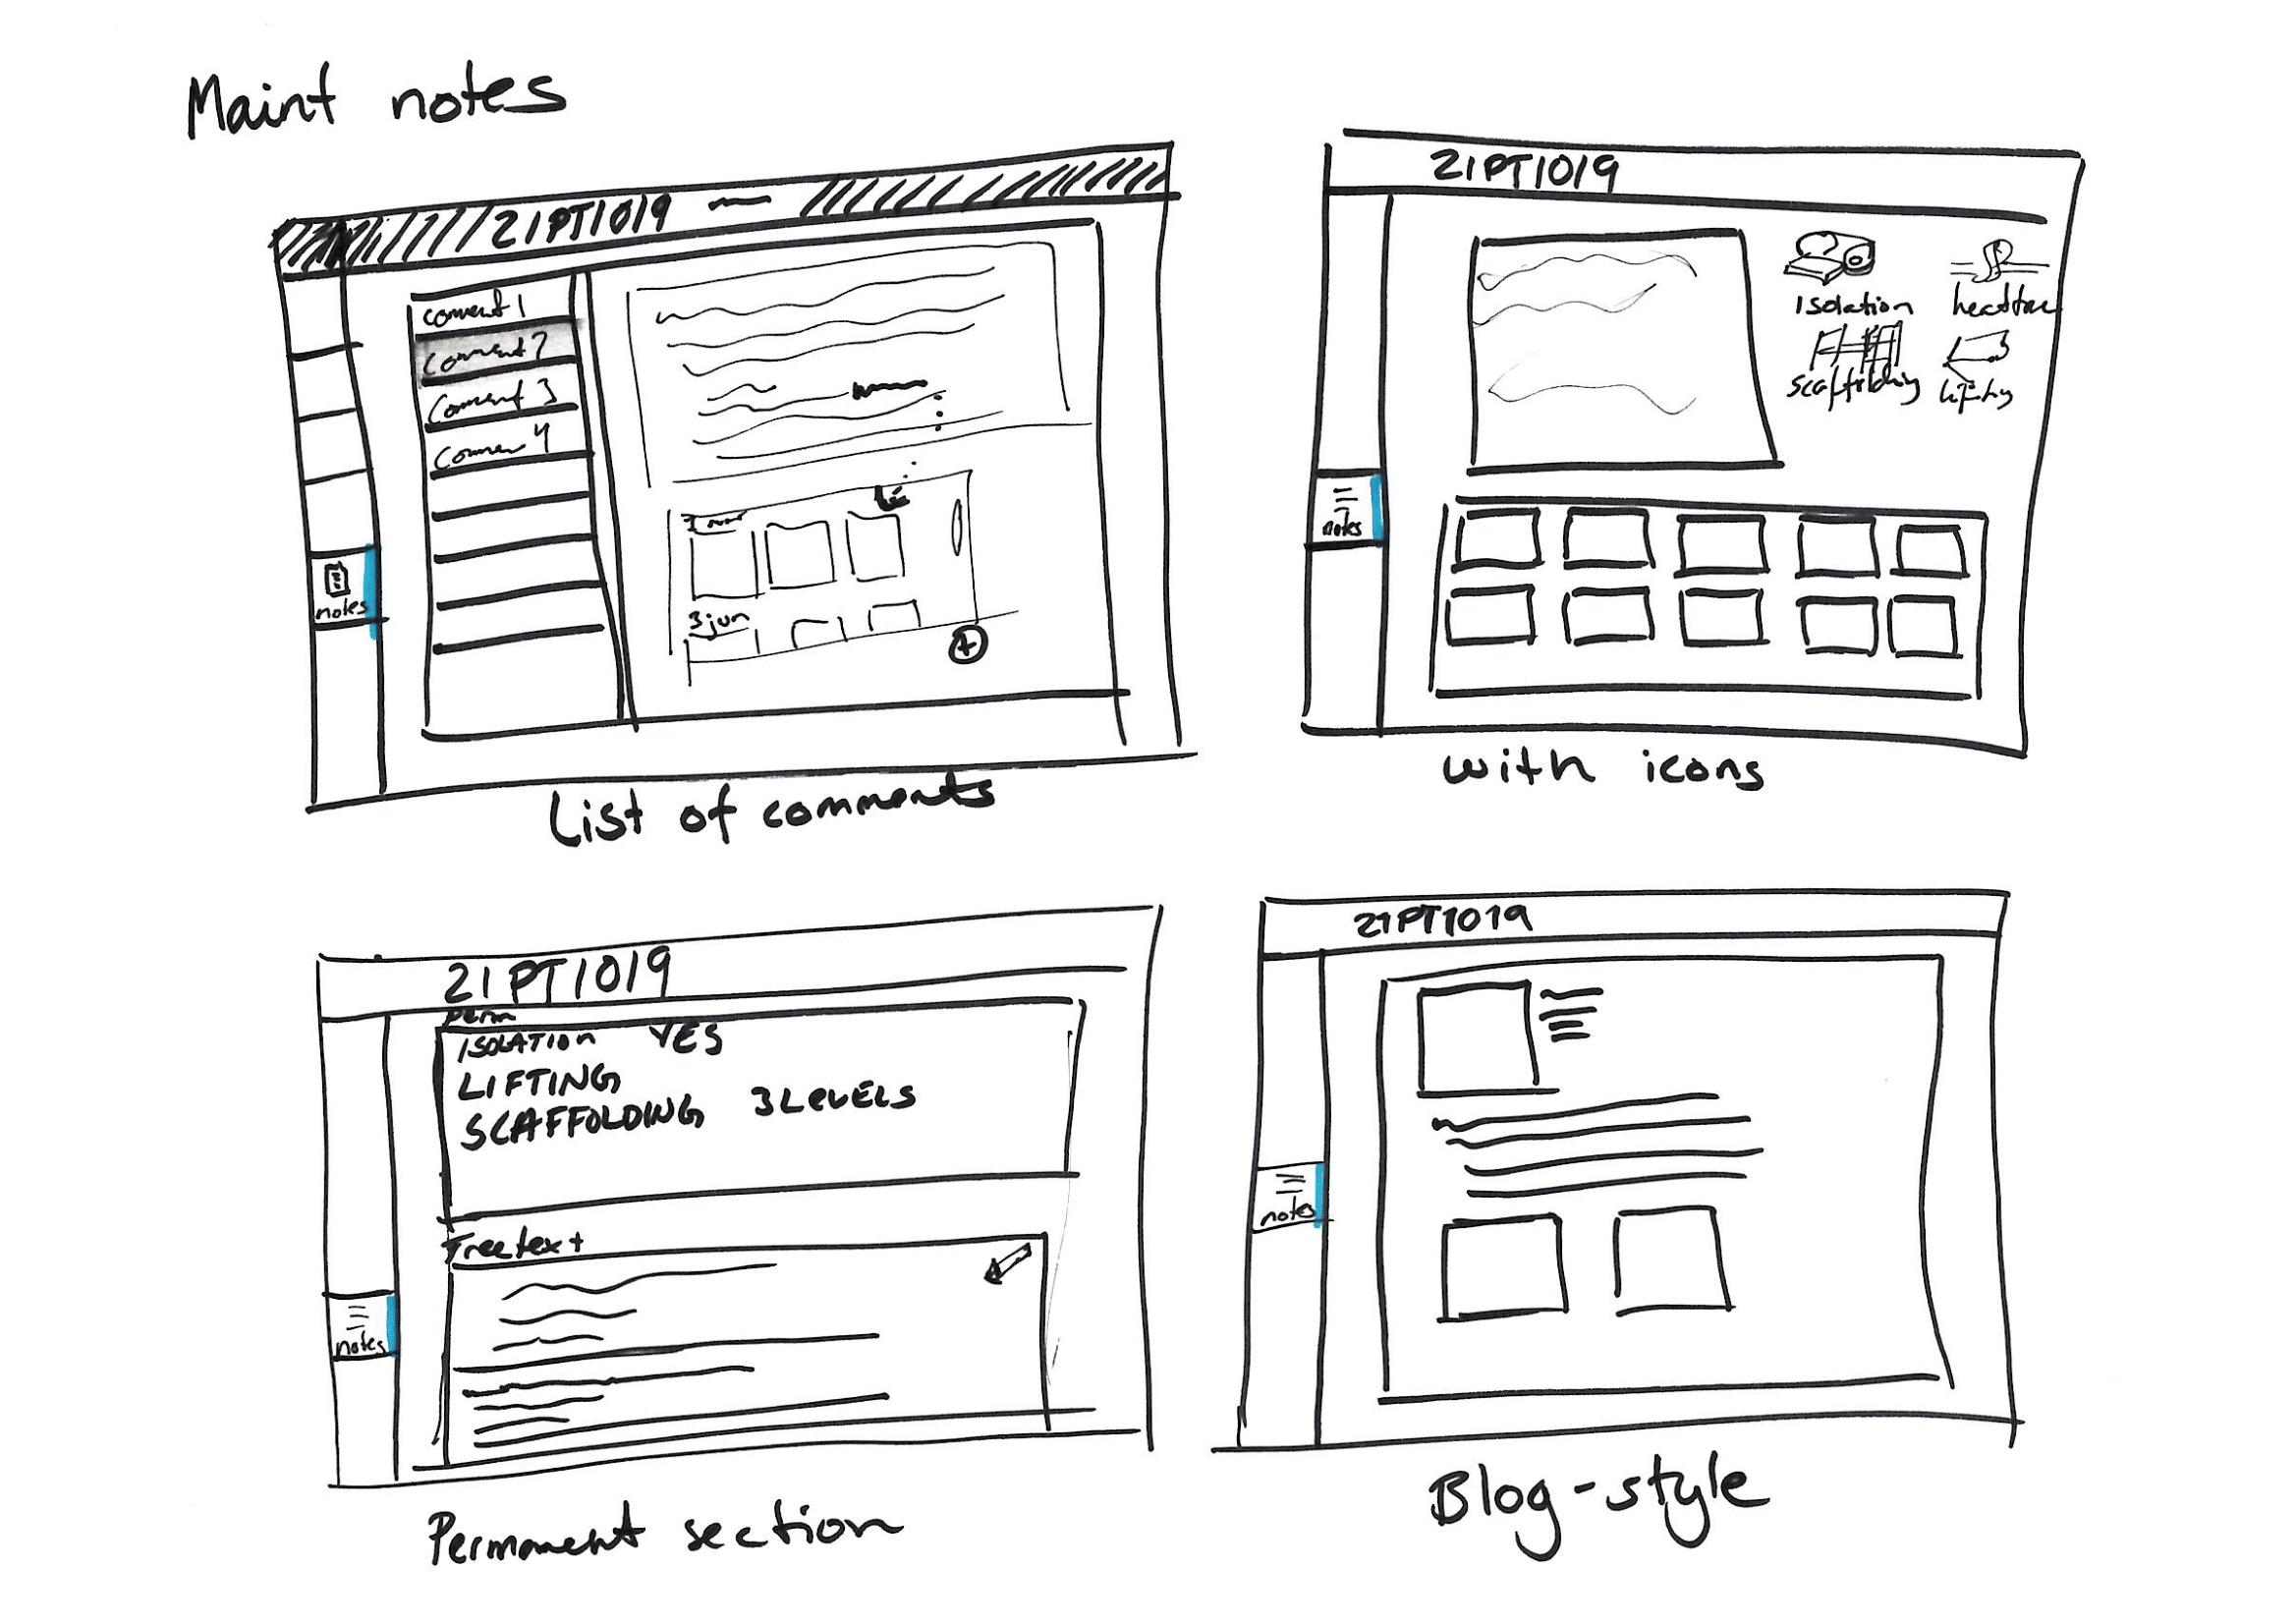 Maint notes
21PT1019
comment 1
Comment 2
Comment 3
Commen 4
notes
3 jun
List of comments
21PT1019
Isolation
heattrac
scaffolding
lifting
notes
with icons
21PT1019
perm
ISOLATION YES
LIFTING
SCAFFOLDING 3 LEVELS
Freetext
notes
Permanent section
21PT1019
notes
Blog-style